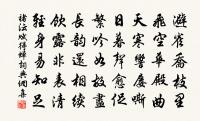 避雀喬枝里
飛空華殿曲
天寒響屢嘶
日暮聲愈促
繁吟如故盡
長韻還相續
飲露非表清
輕身易知足
褚沄賦得蟬詞典網集